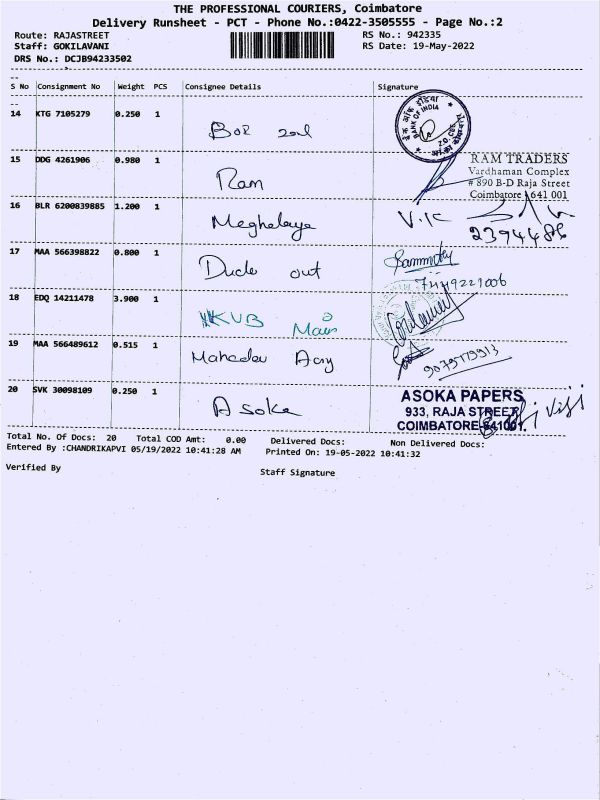 THE PROFESSIONAL COURIERS, Coimbatore
Delivery Runsheet - PCT - Phone No.:0422-3505555 - Page No.:2
Route: RAJASTREET
RS No.: 942335
Staff: GOKILAVANI
RS Date: 19-May-2022
DRS No.: DCJB94233502
S No Consignment No Weight PCS Consignee Details Signature
14 KTG 7105279 0.250 1
BANK OF INDIA
15 DDG 4261906 0.980 1 Ram
RAM TRADERS
Vardhaman Complex
# 890 B-D Raja Street
Coimbatore 641 001
16 BLR 6200839885 1.200 1 Meghelaya
2394486
17 MAA 566398822 0.800 1 Dude out
18 EDQ 14211478 3.900 1 KVB Main
19 MAA 566489612 0.515 1 Mahadev Acry
20 SVK 30098109 0.250 1 Asoka
ASOKA PAPERS
933, RAJA STREET,
COIMBATORE-641001.
Total No. Of Docs: 20 Total COD Amt: 0.00 Delivered Docs: Non Delivered Docs:
Entered By :CHANDRIKAPVI 05/19/2022 10:41:28 AM Printed On: 19-05-2022 10:41:32
Verified By
Staff Signature